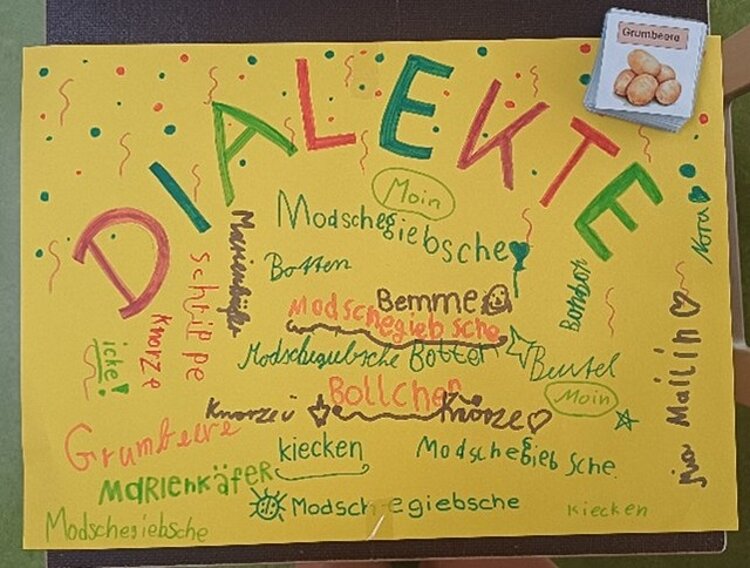 Grumbeere
DIALEKTE
Moin
Modschegiebsche
Marienkäfer
Botten
Nora
Schtilpe
Bonbon
Bemme
Modschegiebsche
Knorze
icke!
Modschegiebsche Botten
Beutel
Bollchen
Moin
Knorze
Knörze
Mailin
Grumbeere
kiecken
Modschegiebsche
Marienkäfer
Modschegiebsche
kiecken
Modschegiebsche